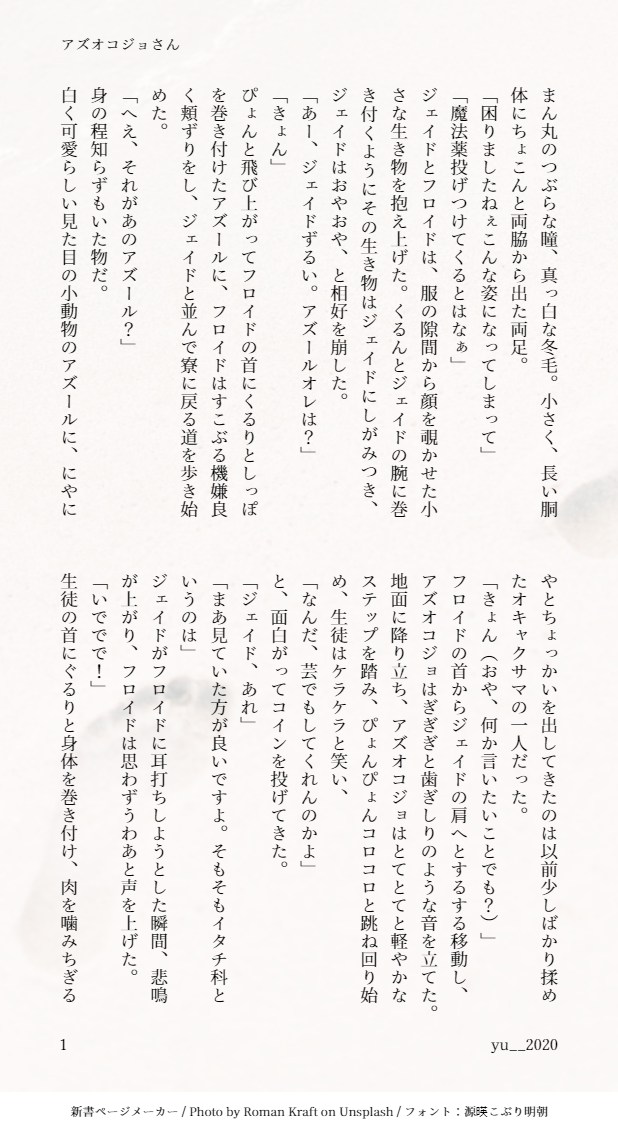 アズオコジョさん
まん丸のつぶらな瞳、真っ白な冬毛。小さく、長い胴
体にちょこんと両脇から出た両足。
「困りましたねぇこんな姿になってしまって」
「魔法薬投げつけてくるとはなぁ」
ジェイドとフロイドは、服の隙間から顔を覗かせた小
さな生き物を抱え上げた。くるんとジェイドの腕に巻
き付くようにその生き物はジェイドにしがみつき、
ジェイドはおやおや、と相好を崩した。
「あー、ジェイドずるい。アズールオレは？」
「きょん」
ぴょんと飛び上がってフロイドの首にくるりとしっぽ
を巻き付けたアズールに、フロイドはすこぶる機嫌良
く頬ずりをし、ジェイドと並んで寮に戻る道を歩き始
めた。
「へえ、それがあのアズール？」
身の程知らずもいた物だ。
白く可愛らしい見た目の小動物のアズールに、にやに
やとちょっかいを出してきたのは以前少しばかり揉め
たオキャクサマの一人だった。
「きょん（おや、何か言いたいことでも？）」
フロイドの首からジェイドの肩へとするする移動し、
アズオコジョはぎぎぎと歯ぎしりのような音を立てた。
地面に降り立ち、アズオコジョはとてとてと軽やかな
ステップを踏み、ぴょんぴょんコロコロと跳ね回り始
め、生徒はケラケラと笑い、
「なんだ、芸でもしてくれんのかよ」
と、面白がってコインを投げてきた。
「ジェイド、あれ」
「まあ見ていた方が良いですよ。そもそもイタチ科と
いうのは」
ジェイドがフロイドに耳打ちしようとした瞬間、悲鳴
が上がり、フロイドは思わずうわあと声を上げた。
「いででで！」
生徒の首にぐるりと身体を巻き付け、肉を噛みちぎる
1
yu__2020
新書ページメーカー / Photo by Roman Kraft on Unsplash / フォント：源暎こぶり明朝